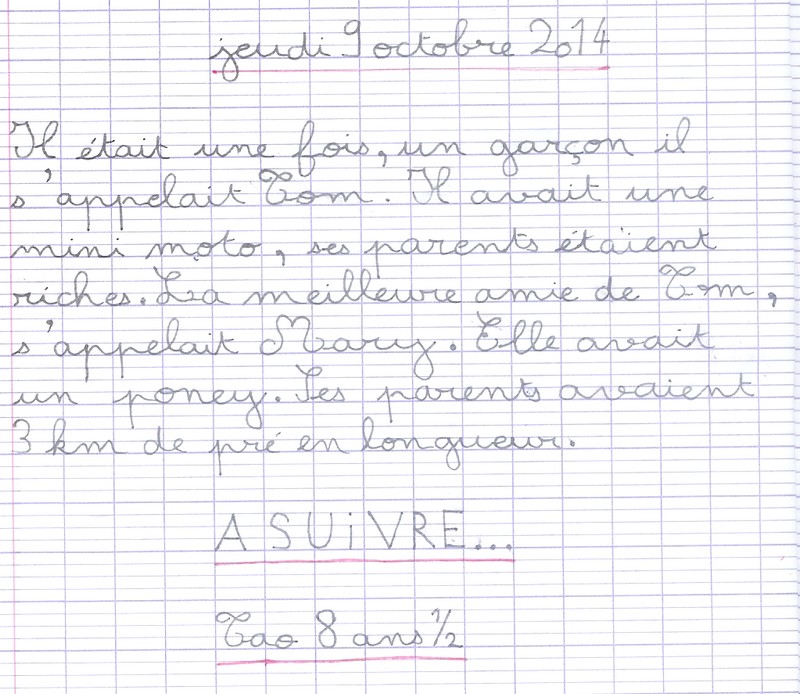 jeudi 9 octobre 2014
Il était une fois, un garçon il
s'appelait Tom. Il avait une
mini moto, ses parents étaient
riches. La meilleure amie de Tom,
s'appelait Mary. Elle avait
un poney. Ses parents avaient
3 km de pré en longueur.
A SUiVRE...
Tao 8 ans 1/2